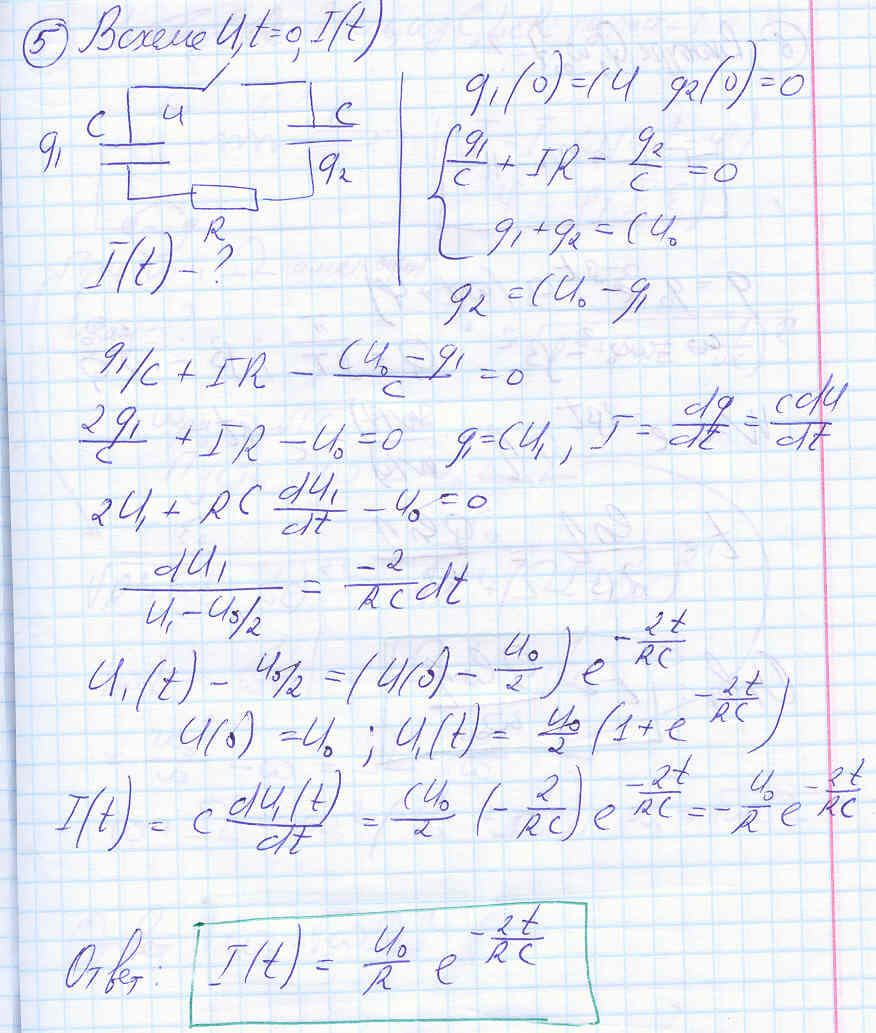 5 В схеме U, t=0, I(t)
C U C
q₁ q₂
R
I(t) - ?
q₁(0) = CU q₂(0) = 0
q₁/C + IR - q₂/C = 0
q₁ + q₂ = CU₀
q₂ = CU₀ - q₁
q₁/C + IR - (CU₀ - q₁)/C = 0
2q₁/C + IR - U₀ = 0 q₁ = CU₁, I = dq/dt = CdU/dt
2U₁ + RC dU₁/dt - U₀ = 0
dU₁/(U₁ - U₀/2) = -2/RC dt
U₁(t) - U₀/2 = (U(0) - U₀/2) e^(-2t/RC)
U(0) = U₀; U₁(t) = U₀/2 (1 + e^(-2t/RC))
I(t) = C dU₁(t)/dt = CU₀/2 (-2/RC) e^(-2t/RC) = -U₀/R e^(-2t/RC)
Ответ: I(t) = U₀/R e^(-2t/RC)